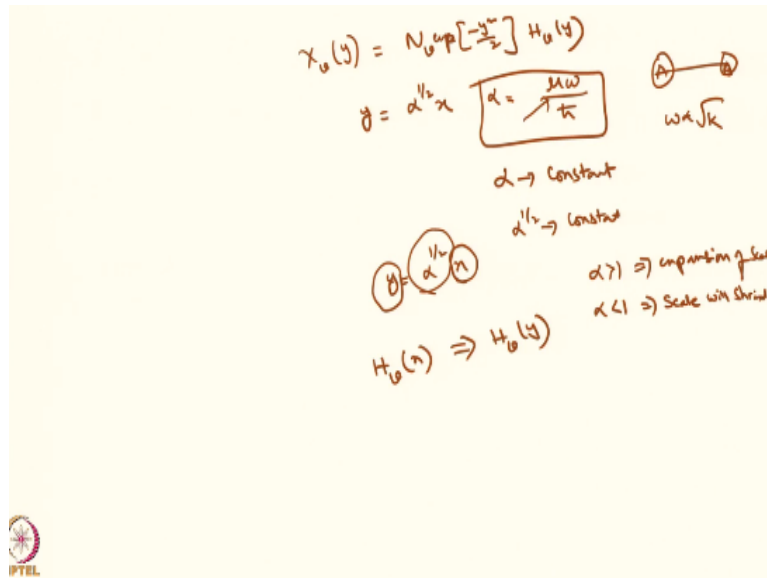 χ_υ(y) = N_υ exp[-y²/2] H_υ(y)
y = α^{1/2} x   α = μω/ħ   A   A
ω α √k
α → constant
α^{1/2} → constant
y = α^{1/2} x
α > 1 ⇒ expansion of Scale
α < 1 ⇒ Scale will Shrink
H_υ(x) ⇒ H_υ(y)
NPTEL